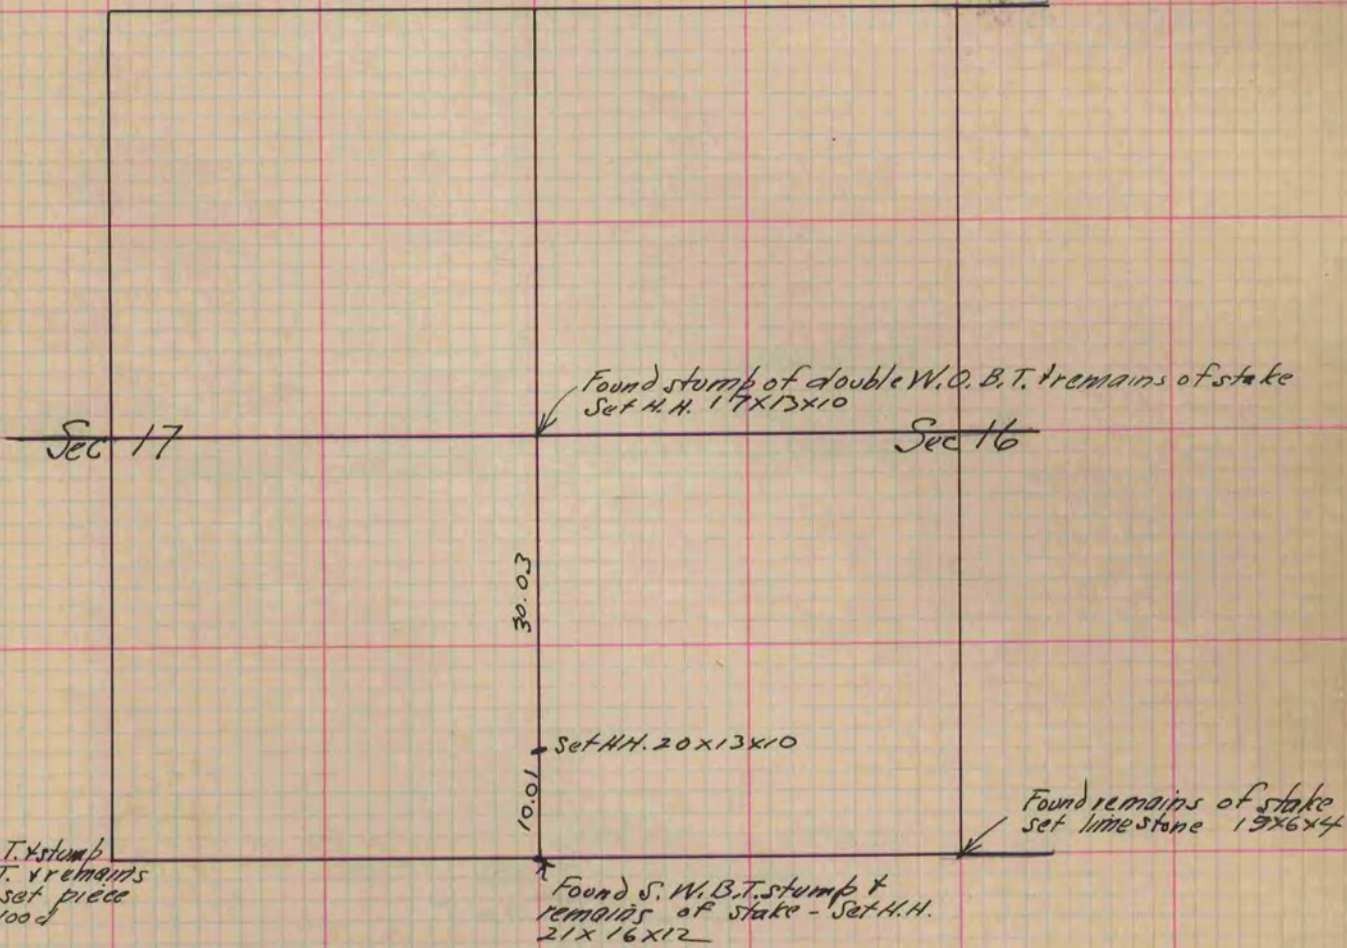 Found stump of double W.O.B.T. & remains of stake
Set H.H. 17x13x10
Sec 17
Sec 16
30.03
Set H.H. 20x13x10
10.01
Found remains of stake
set limestone 19x6x4
T. & stump
T. & remains
set piece
Found S.W.B.T. stump &
remains of stake - Set H.H.
21x16x12